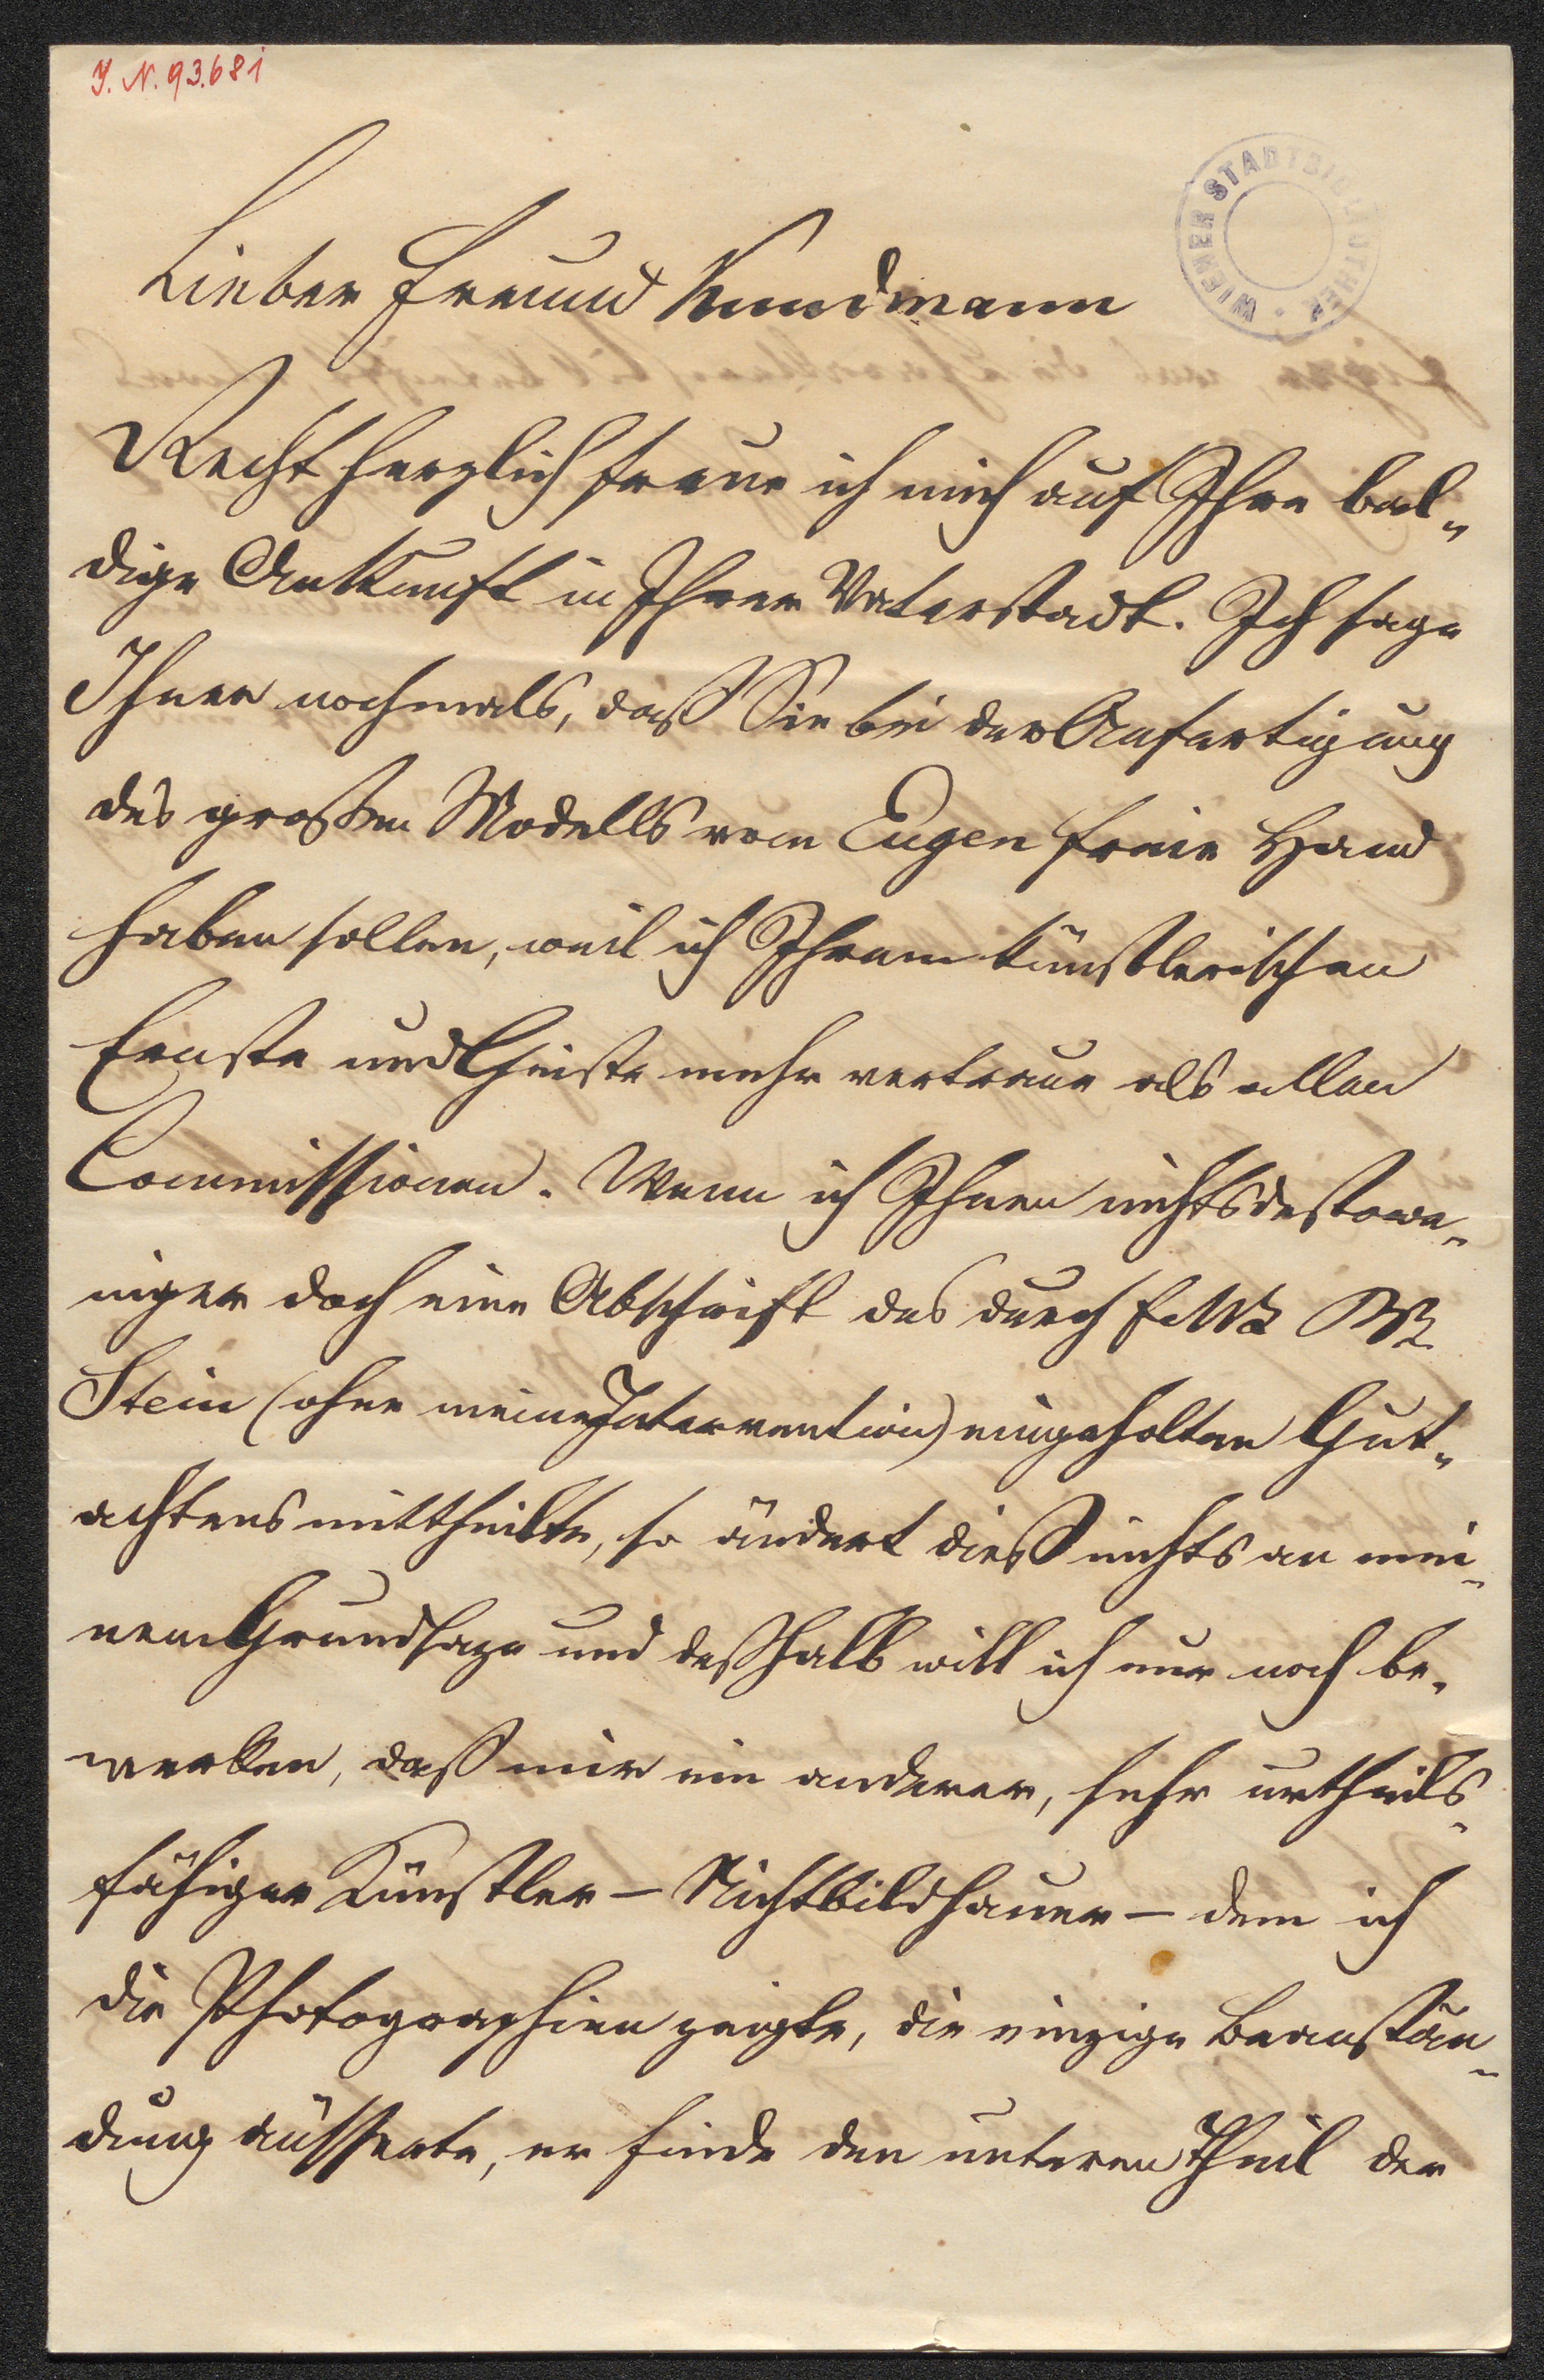 I. N. 93.681
WIENER STADTBIBLIOTHEK
Lieber Freund Kundmann
Recht herzlich freue ich mich auf Ihre bal-
dige Ankunft in Ihrer Vaterstadt. Ich sage
Ihnen nochmals, daß Sie bei der Anfertigung
des großen Modells vom Eugen freie Hand
haben sollen, weil ich Ihrem künstlerischen
Ernste und Geiste mehr vertraue als allen
Commissionen. Wenn ich Ihnen nichtsdestowe-
niger doch eine Abschrift des durch FML
Stein (ohne meine Intervention) eingeholten Gut-
achtens mittheilte, so ändert dieß nichts an mei-
nem Grundsaze und deßhalb will ich nur noch be-
merken, daß mir ein anderer, sehr urtheils-
fähiger Künstler – Nichtbildhauer – dem ich
die Photographien zeigte, die einzige Beanstän-
dung äußerte, er finde den unteren Theil der